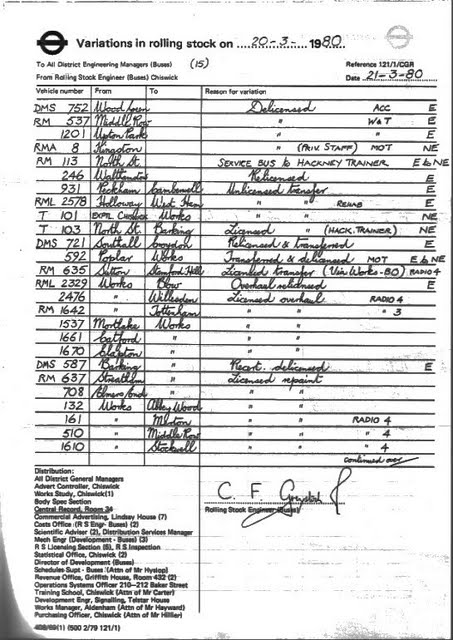 Variations in rolling stock on 20-3-1980
To All District Engineering Managers (Buses) (15) Reference 121/1/CGR
From Rolling Stock Engineer (Buses) Chiswick Date 21-3-80
Vehicle number From To Reason for variation
DMS 752 Wood Green Delicensed ACC E
RM 537 Middle Row " W&T E
1201 Upton Park " " E
RMA 8 Kingston " (PRIV. STAFF) MOT NE
RM 113 North St. SERVICE BUS to HACKNEY TRAINER E to NE
246 Walthamstow Relicensed E
931 Peckham Camberwell Unlicensed transfer E
RML 2578 Holloway West Ham " " REHAB E
T 101 EXPTL CHISWICK Works " " NE
T 103 North St. Barking Licensed " (HACK. TRAINER) NE
DMS 721 Southall Croydon Relicensed & transferred E
592 Poplar Works Transferred & delicensed MOT E to NE
RM 635 Sutton Stamford Hill Licensed transfer (Via Works-BO) RADIO 4
RML 2329 Works Bow Overhaul relicensed E
2476 " Willesden Licensed overhaul RADIO 4
RM 1642 " Tottenham " " " 3
1537 Mortlake Works " "
1661 Catford " " "
1670 Clapton " " "
DMS 587 Barking " Recert. delicensed E
RM 637 Streatham " Licensed repaint
708 Elmers End " " "
132 Works Abbey Wood " "
161 " Merton " " RADIO 4
510 " Middle Row " " " 4
1610 " Stockwell " " " 4
continued over
Distribution:
All District General Managers
Advert Controller, Chiswick
Works Study, Chiswick(1)
Body Spec Section
Central Record, Room 34
Commercial Advertising, Lindsey House (7)
Costs Office (R S Engr- Buses) (2)
Scientific Adviser (2), Distribution Services Manager
Mech Engr (Development - Buses) (3)
R S Licensing Section (6), R S Inspection
Statistical Office, Chiswick (2)
Director of Development (Buses)
Schedules Supt - Buses (Attn of Mr Hyslop)
Revenue Office, Griffith House, Room 432 (2)
Operations Systems Officer 210-212 Baker Street
Training School, Chiswick (Attn of Mr Carter)
Development Engr, Signalling, Telstar House
Works Manager, Aldenham (Attn of Mr Hayward)
Purchasing Officer, Chiswick (Attn of Mr Hillier)
C. F.
Rolling Stock Engineer (Buses)
(1) (500 2/79 121/1)